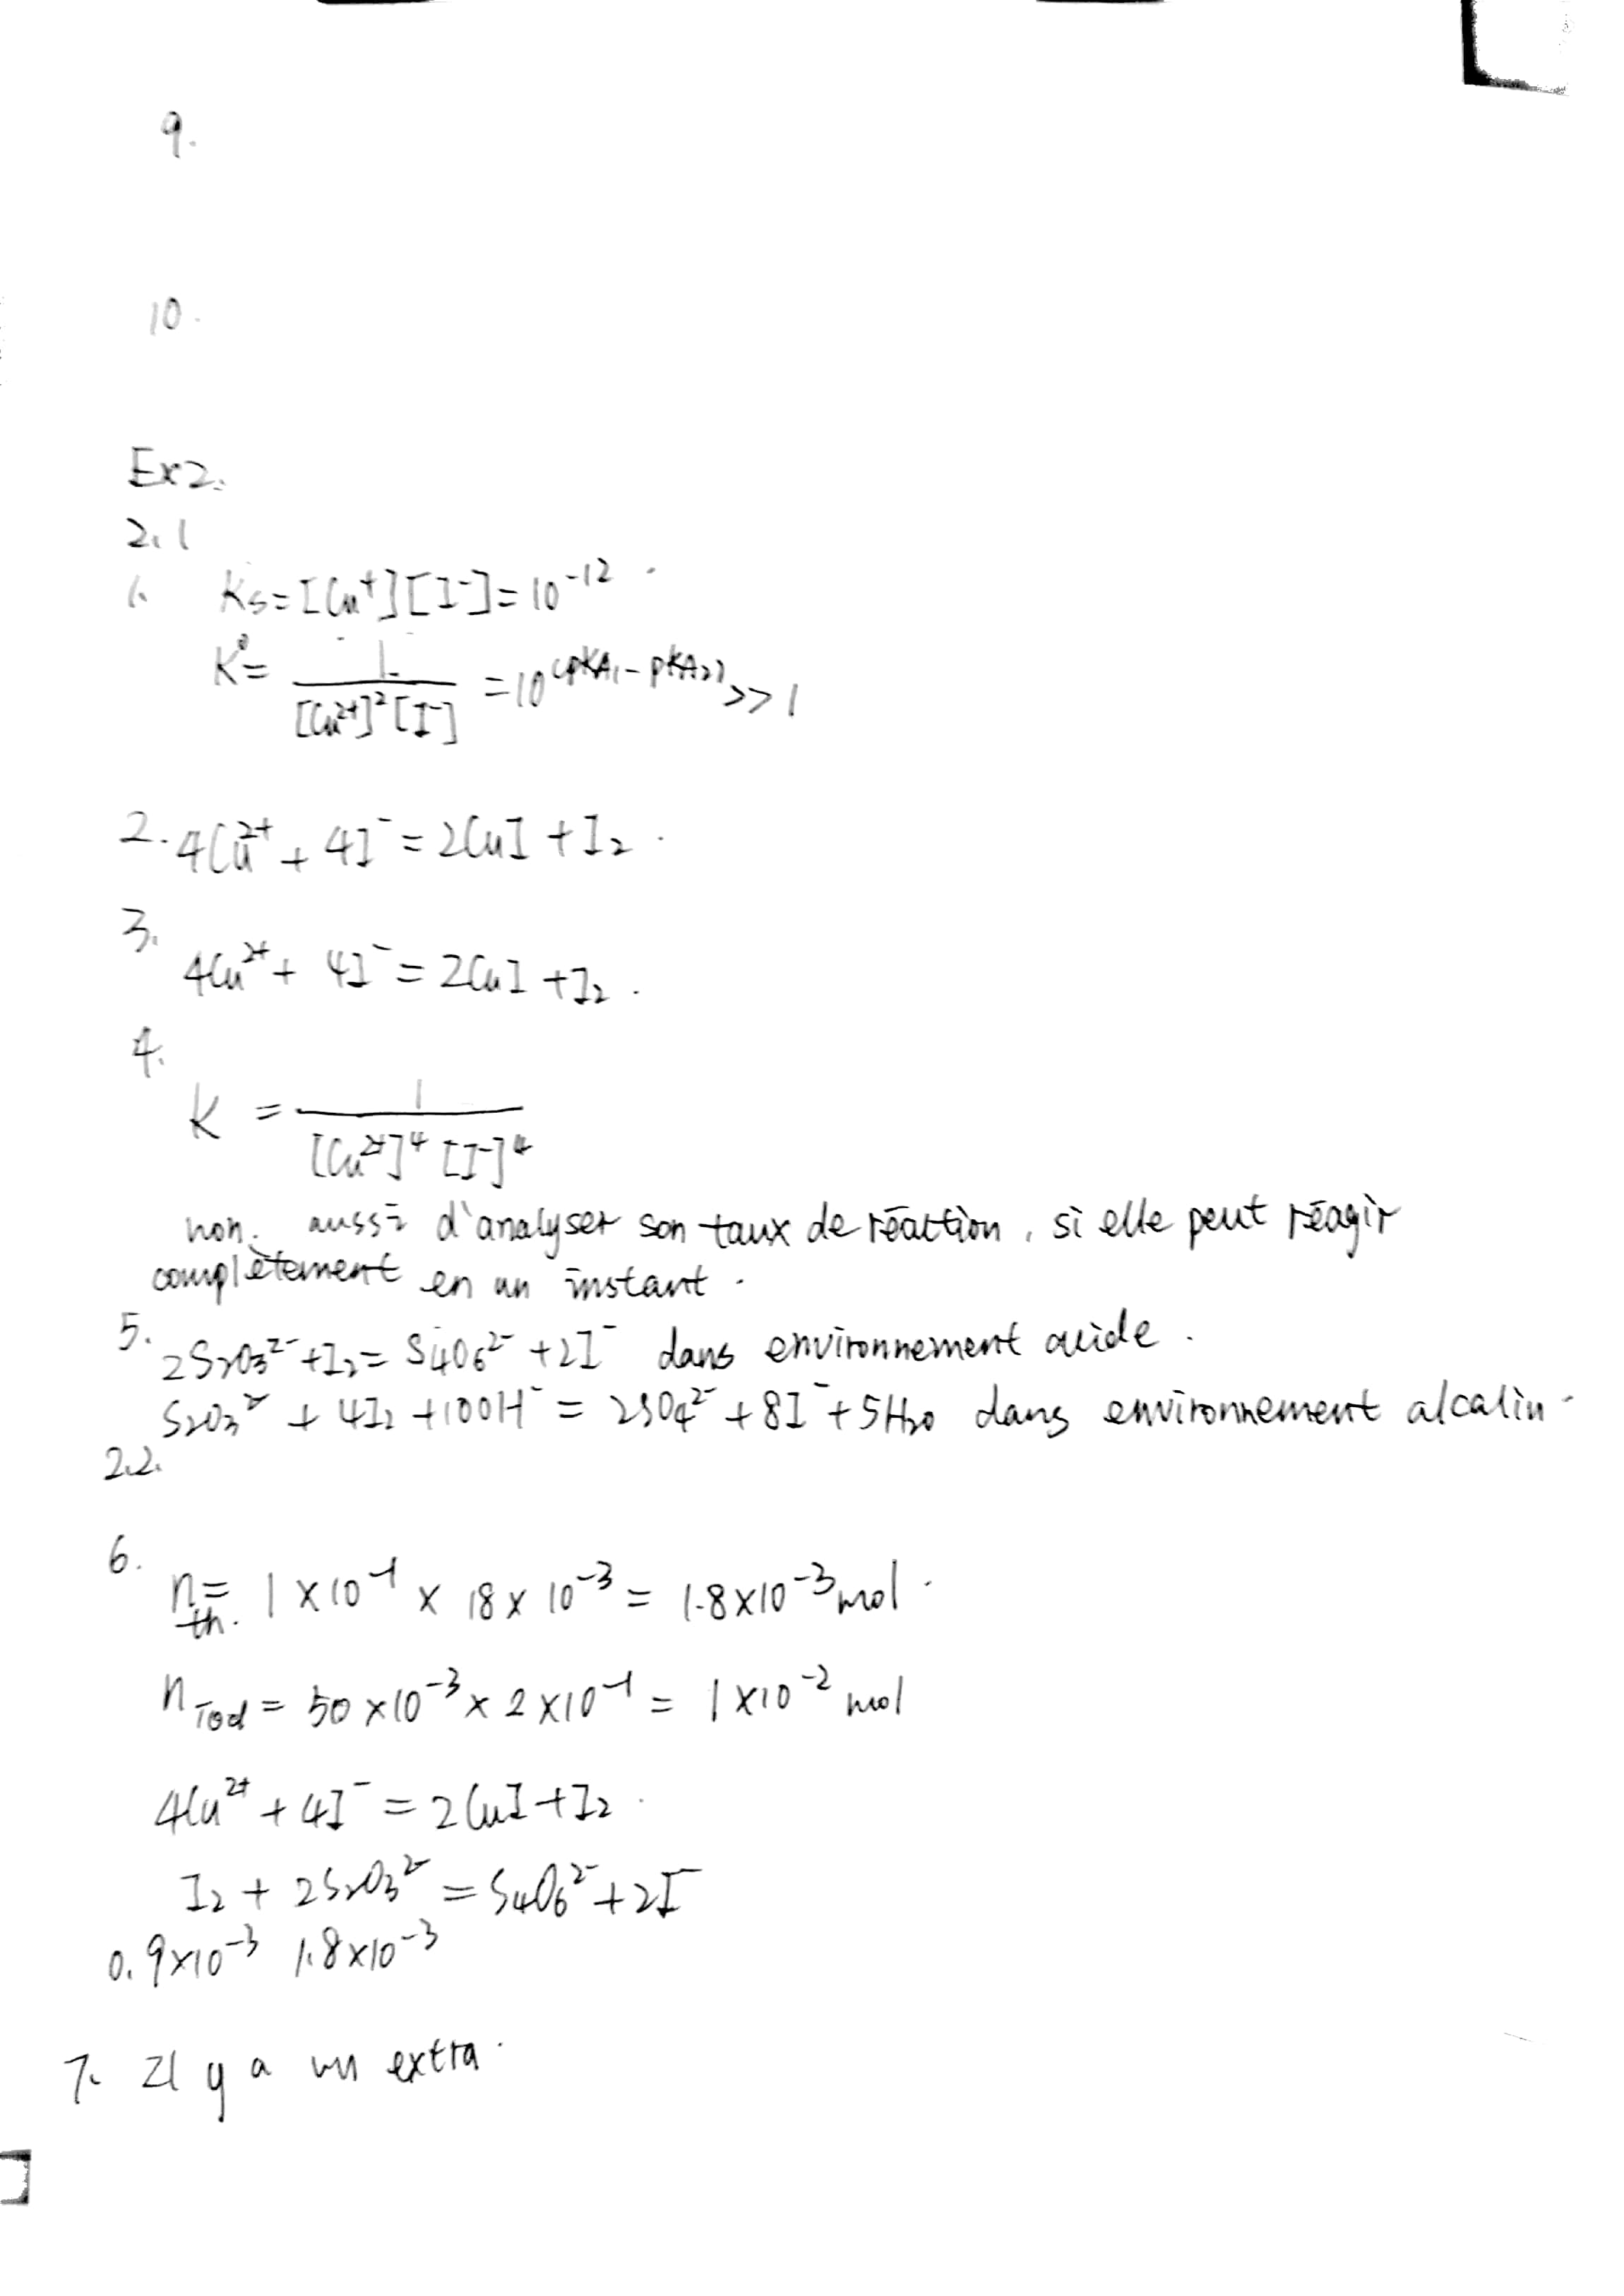 9.
10.
Ex2.
2.1
1. Ks=[Cu⁺][I⁻]=10⁻¹²
K⁰= 1/([Cu²⁺]²[I⁻]) =10^(pKA₁-pKA₂) >>1
2. 4Cu²⁺ + 4I⁻ = 2CuI + I₂.
3.
4Cu²⁺ + 4I⁻ = 2CuI + I₂.
4.
K = 1/([Cu²⁺]⁴ [I⁻]⁴)
non. aussi d'analyser son taux de réaction, si elle peut réagir
complètement en un instant.
5. 2S₂O₃²⁻ + I₂ = S₄O₆²⁻ + 2I⁻ dans environnement acide.
S₂O₃²⁻ + 4I₂ + 10OH⁻ = 2SO₄²⁻ + 8I⁻ + 5H₂O dans environnement alcalin.
2.2.
6. n th. = 1×10⁻¹ × 18×10⁻³ = 1.8×10⁻³ mol.
n iod = 50×10⁻³ × 2×10⁻¹ = 1×10⁻² mol
4Cu²⁺ + 4I⁻ = 2CuI + I₂.
I₂ + 2S₂O₃²⁻ = S₄O₆²⁻ + 2I⁻
0.9×10⁻³ 1.8×10⁻³
7. Il y a un extra.